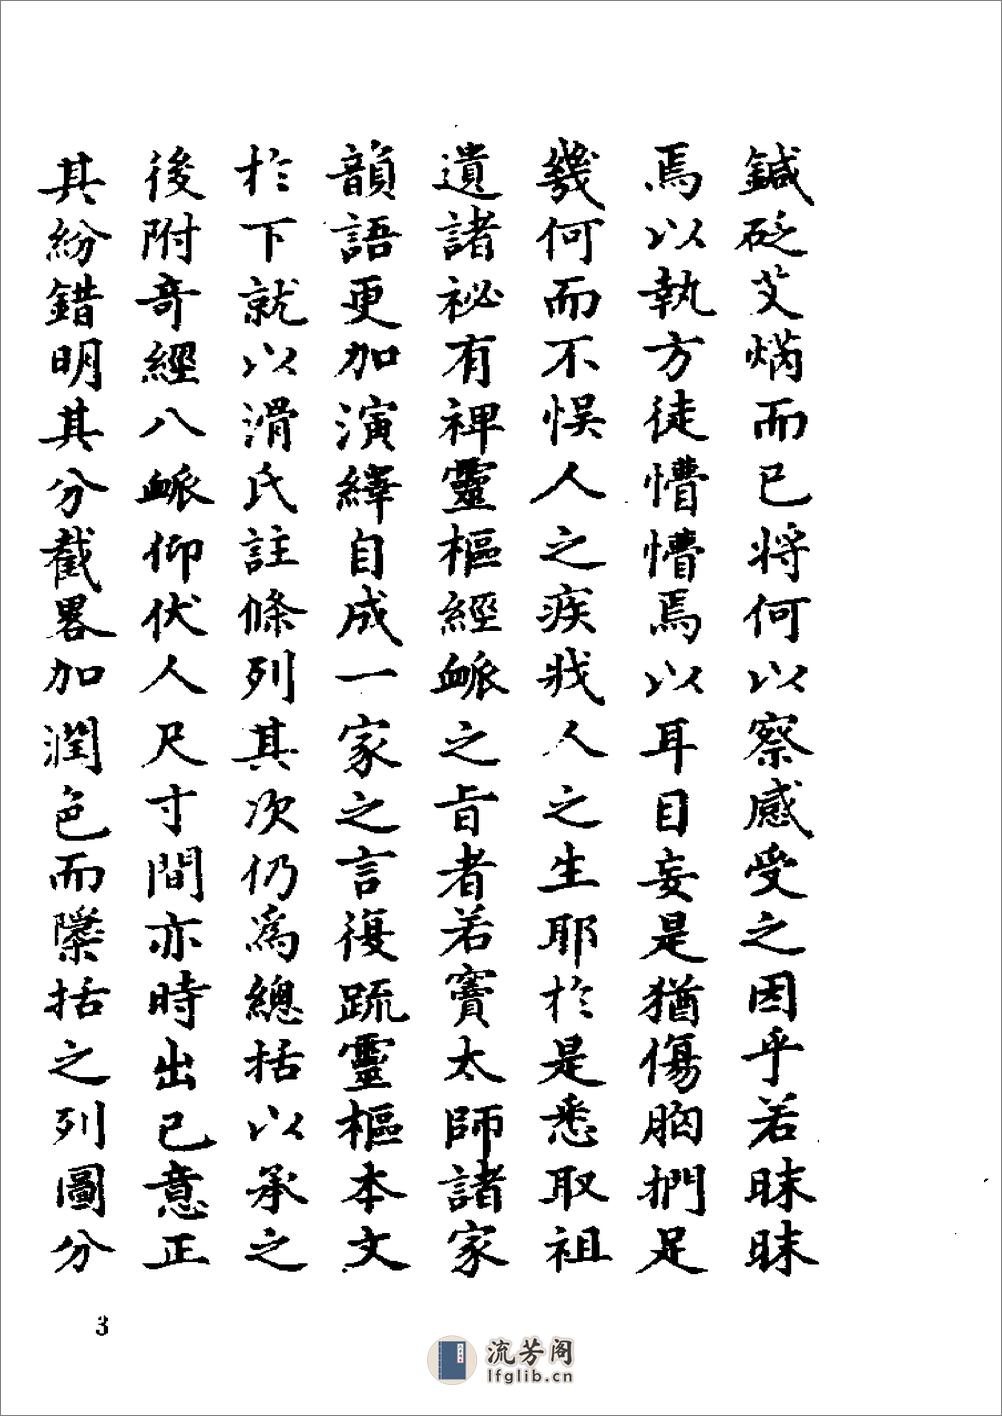 鍼砭艾焫而已将何以察感受之因乎若昧昧
焉以執方徒懵懵焉以耳目妄是猶傷胸捫足
幾何而不悮人之疾戕人之生耶於是悉取祖
遺諸祕有裨靈樞經脈之旨者若竇太師諸家
韻語更加演繹自成一家之言復疏靈樞本文
於下就以滑氏註條列其次仍爲總括以承之
後附奇經八脈仰伏人尺寸間亦時出已意正
其紛錯明其分截畧加潤色而檃括之列圖分
3
流芳阁
lfglib.cn